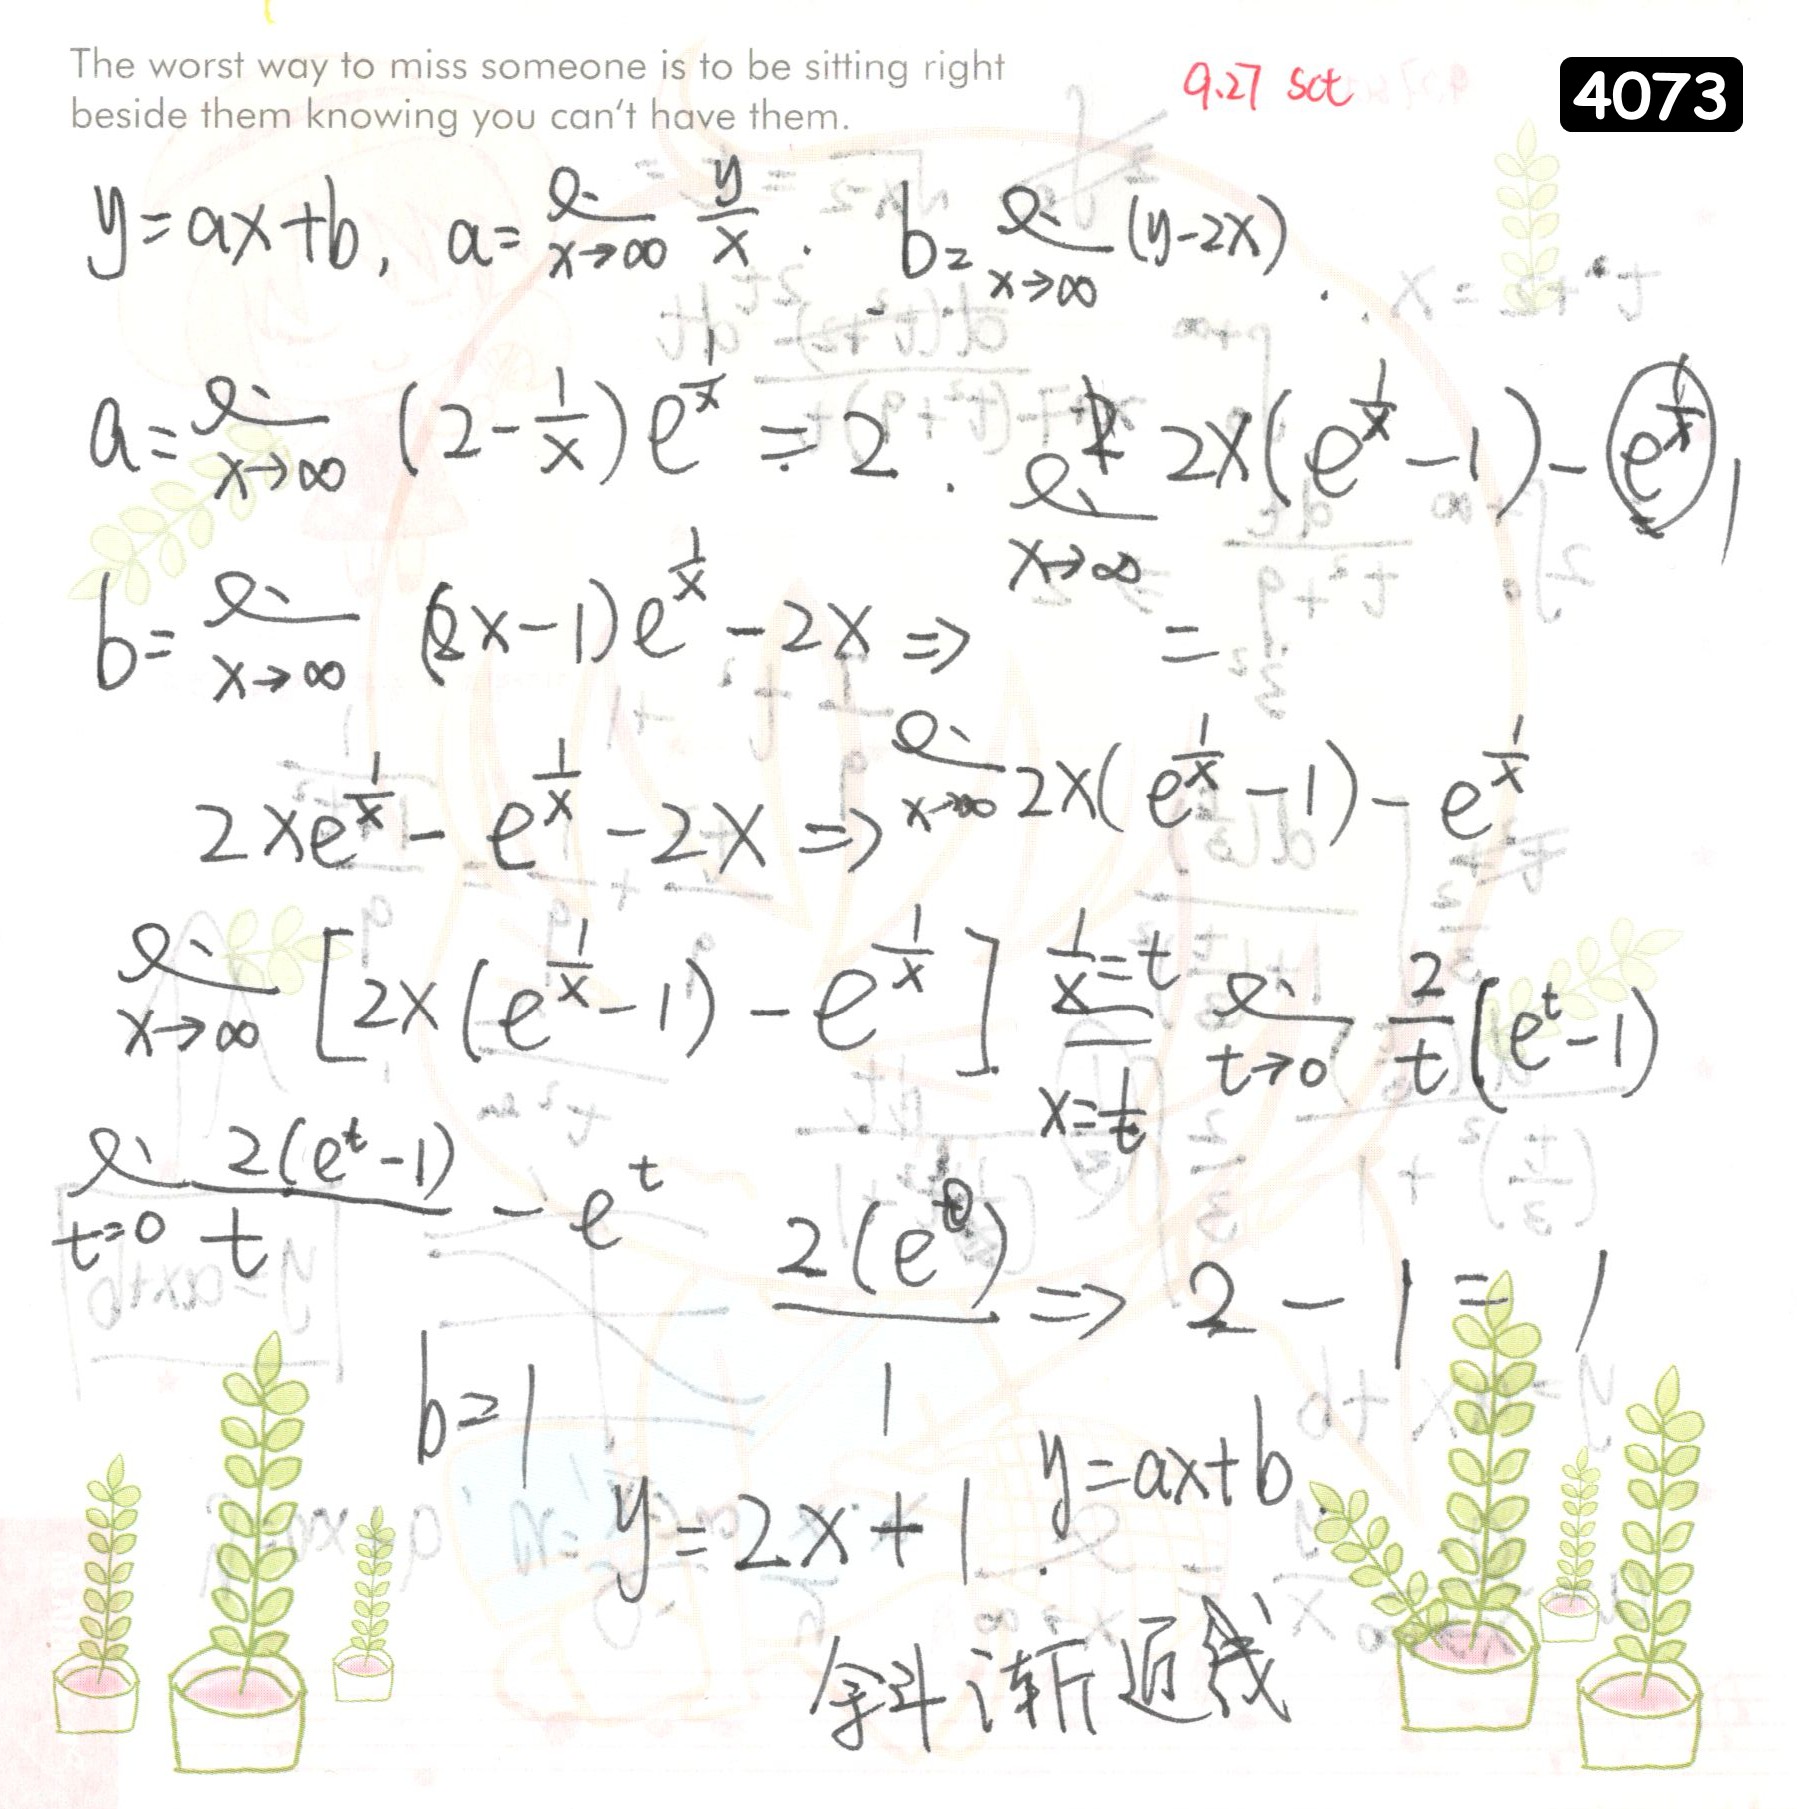 The worst way to miss someone is to be sitting right
beside them knowing you can't have them.
9.27 sct
4073
y=ax+b, a= lim x→∞ y/x . b= lim x→∞ (y-2x) .
a= lim x→∞ (2-1/x)e^(1/x) = 2 . lim x→∞ 2x(e^(1/x)-1)-e^(1/x)
b= lim x→∞ (2x-1)e^(1/x) -2x ⇒ =
2xe^(1/x) - e^(1/x) -2x ⇒ lim x→∞ 2x(e^(1/x)-1)-e^(1/x)
lim x→∞ [2x(e^(1/x)-1)-e^(1/x)] 1/x=t x=1/t lim t→0 2/t(e^t-1)
lim t=0 2(e^t-1)/t - e^t 2(e^0)/1 ⇒ 2-1=1
b=1
y=2x+1. y=ax+b.
斜渐近线